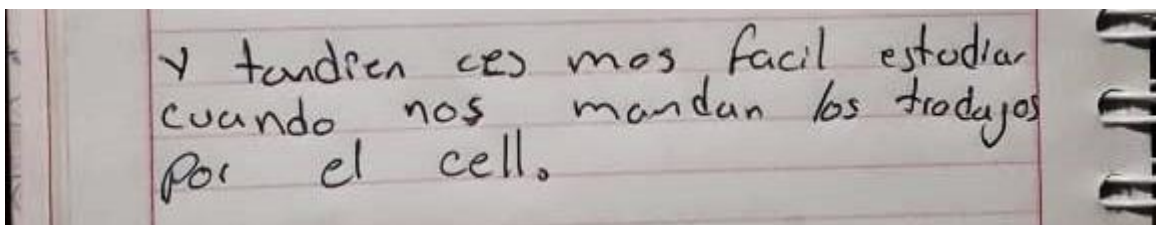 y tandien ces mas facil estudiar
cuando nos mandan los trodajos
por el cell.